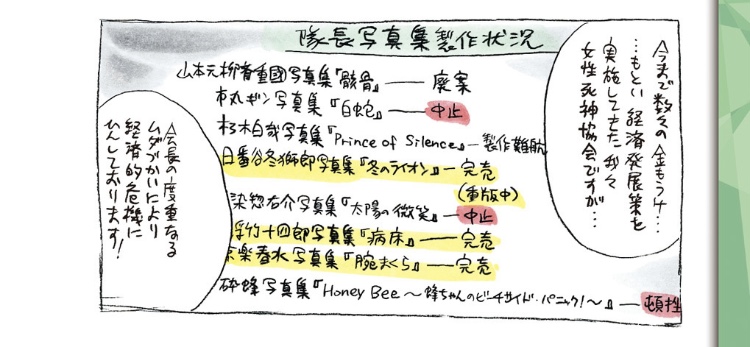 今まで数々の金もうけ…
…もとい 経済発展策を
実施してきた我々
女性死神協会ですが…
隊長写真集製作状況
山本元柳斎重國写真集『骸骨』—廃案
市丸ギン写真集『白蛇』—中止
朽木白哉写真集『Prince of Silence』—製作難航
日番谷冬獅郎写真集『冬のライオン』—完売
(重版中)
染惣右介写真集『太陽の微笑』—中止
浮竹十四郎写真集『病床』—完売
京樂春水写真集『腕まくら』—完売
砕蜂写真集『Honey Bee ～蜂ちゃんのビーチサイド・パニック!～』—頓挫
会長の度重なる
ムダづかいにより
経済的危機に
ひんしております!